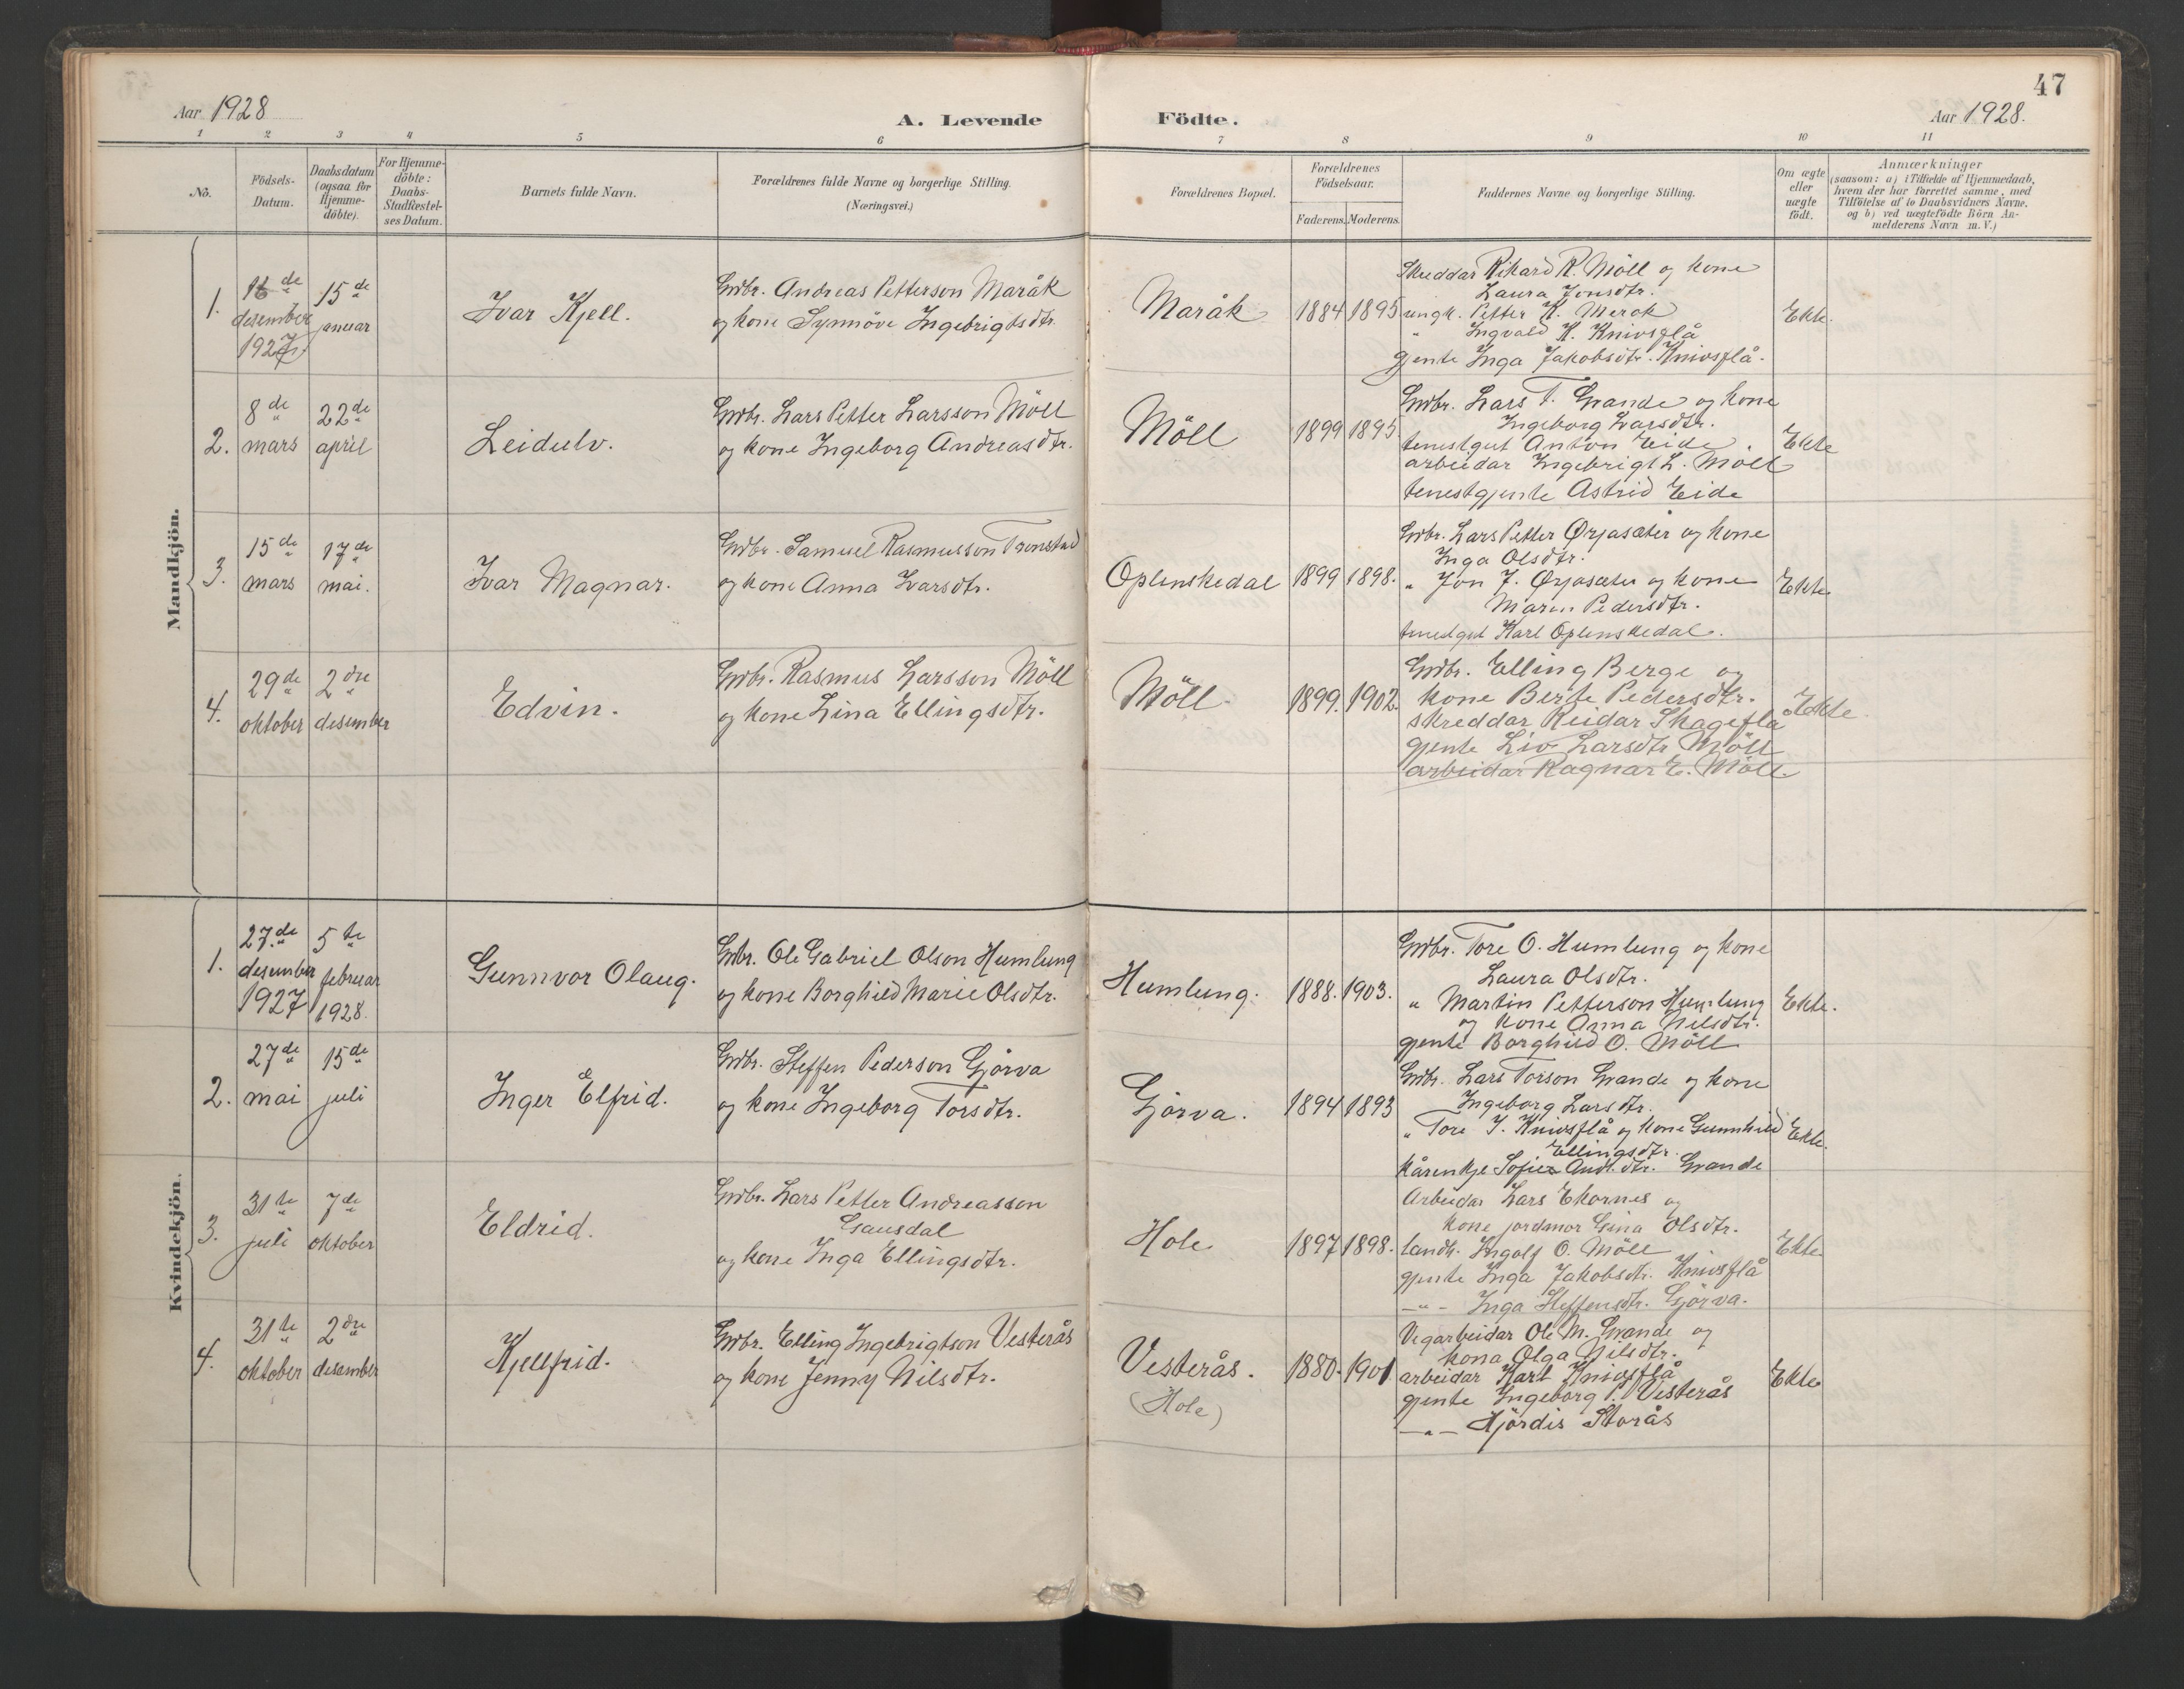 47
Aar 1928
A. Levende Födte.
Aar 1928.
1 2 3 4 5 6 7 8 9 10 11
No.
Födsels-
Datum.
Daabsdatum
(ogsaa for
Hjemme-
döbte).
For Hjemme-
döbte:
Daabs-
Stadfæstel-
ses Datum.
Barnets fulde Navn.
Forældrenes fulde Navne og borgerlige Stilling.
(Næringsvei.)
Forældrenes Bopæl.
Forældrenes
Födselsaar.
Faderens. Moderens.
Faddernes Navne og borgerlige Stilling.
Om ægte
eller
uægte
födt.
Anmærkninger
(saasom: a) i Tilfælde af Hjemmedaab,
hvem der har forrettet samme, med
Tilföielse af to Daabsvidners Navne,
og b) ved uægtefödte Börn An-
melderens Navn m. V.)
Mandkjön.
1.
de
desember
1927.
15 de
januar
Ivar Kjell.
Gmbr. Andreas Petterson Maråk
og kone Synnöve Ingebrigtsdtr.
Maråk
1884
1895
Skreddar Rikard R. Möll og kone
Laura Jonsdtr.
ungk. Petter K. Merok
" Ingvald K. Knivsflå
gjente Inga Jakobsdtr. Knivsflå.
Ekte.
2.
8 de
mars
22 de
april
Leidulv.
Gmbr. Lars Petter Larsson Möll
og kone Ingeborg Andreasdtr.
Möll
1899
1895.
Gmbr. Lars T. Grande og kone
Ingeborg Larsdtr.
tenestgut Anton Eide.
arbeidar Ingebrigt L. Möll
tenestgjente Astrid Eide
Ekte
3.
15 de
mars
17 de
mai.
Ivar Magnar.
Gmbr. Samuel Rasmusson Tronstad
og kone Anna Ivarsdtr.
Oplenskedal
1899
1898.
Gmbr. Lars Petter Ørjasæter og kone
Inga Olsdtr.
" Jon J. Ørjasæter og kone
Maren Pedersdtr.
tenestgut Karl Oplenskedal.
Ekte.
4.
29 de
oktober
2 dre
desember
Edvin.
Gmbr. Rasmus Larsson Möll
og kone Lina Ellingsdtr.
Möll.
1899.
1902.
Gmbr. Elling Berge og
kone Berte Pedersdtr.
skreddar Reidar Skageflå
gjente Liv Larsdtr Möll
arbeidar Ragnar E. Möll.
Ekte.
Kvindekjön.
1.
27. de
desember
1927
5 te
februar
1928.
Gunnvor Olaug.
Gmbr. Ole Gabriel Olson Humlung
og kone Borghild Marie Olsdtr.
Humlung.
1888.
1903.
Gmbr. Tore O. Humlung og kone
Laura Olsdtr.
" Martin Petterson Humlung
og kone Anna Nilsdtr.
gjente Borghild O. Möll
Ekte.
2.
27 de
mai
15 de
juli
Inger Elfrid.
Gmbr. Steffen Pederson Gjörva
og kone Ingeborg Torsdtr.
Gjörva.
1894
1893
Gmbr. Lars Torson Grande og kone
Ingeborg Larsdtr.
" Tore J. Knivsflå og kone Gunnhild
Ellingsdtr.
kårenkje Sofie And. dtr. Grande
Ekte.
3.
31 te
juli
7 de
oktober
Eldrid.
Gmbr. Lars Petter Andreasson
Gausdal
og kone Inga Ellingsdtr.
Hole
1897
1898.
Arbeidar Lars Ekornes og
kone jordmor Gina Olsdtr.
landh. Ingolf O. Möll
gjente Inga Jakobsdtr. Knivsflå
—"— Inga Steffensdtr. Gjörva.
Ekte.
4.
31 te
oktober
2 dre
desember
Kjellfrid.
Gmbr. Elling Ingebrigtson Vesterås
og kone Jenny Nilsdtr.
Vesterås.
(Hole)
1880.
1901
Vegarbeidar Ole M. Grande og
kona Olga Nilsdtr.
arbeidar Karl Knivsflå
gjente Ingeborg P. Vesterås
—"— Hjördis Storås
Ekte